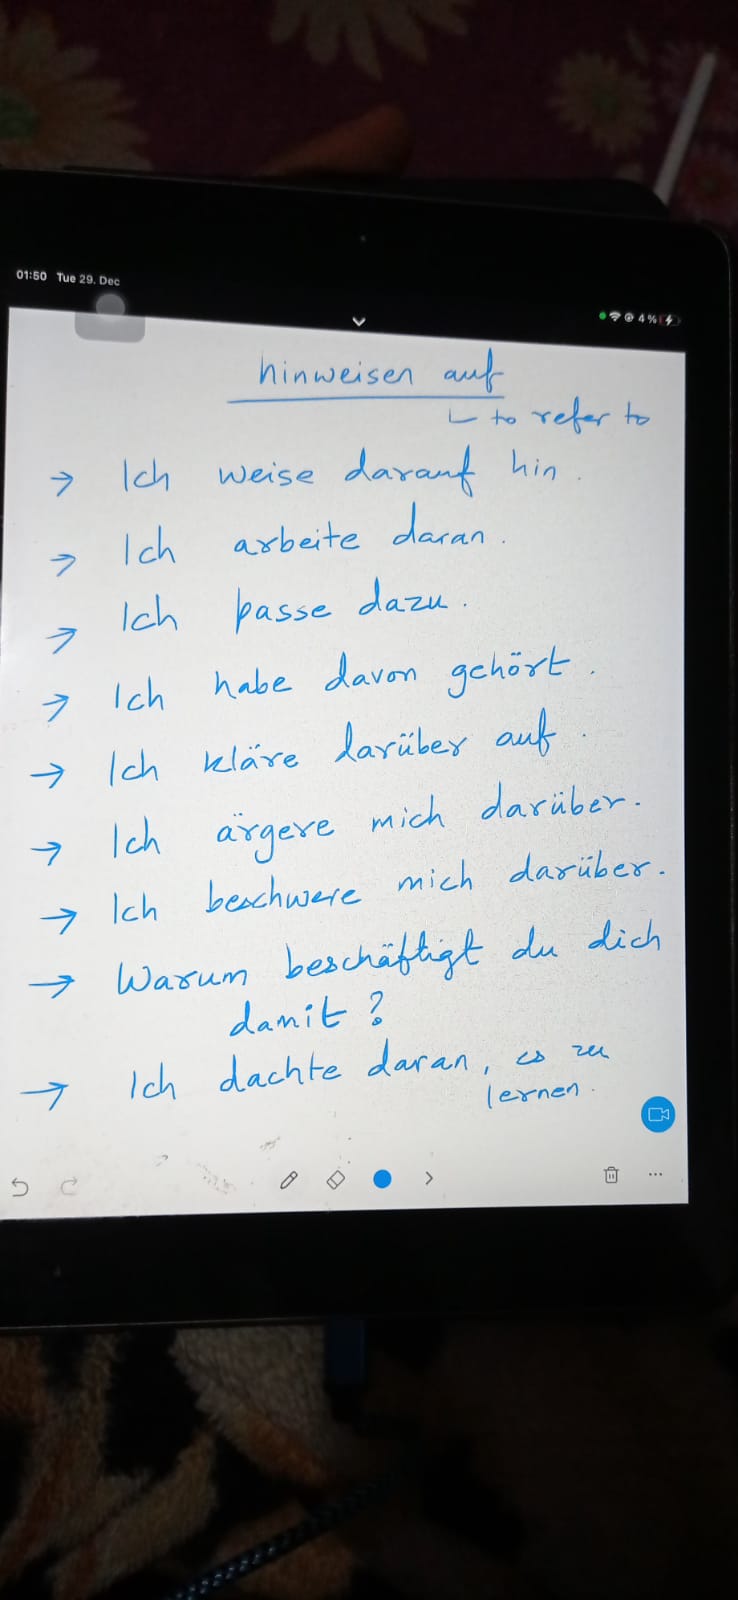 01:50 Tue 29. Dec
4%
hinweisen auf
to refer to
→ Ich weise darauf hin.
→ Ich arbeite daran.
→ Ich passe dazu.
→ Ich habe davon gehört.
→ Ich kläre darüber auf.
→ Ich ärgere mich darüber.
→ Ich beschwere mich darüber.
→ Warum beschäftigt du dich
damit?
→ Ich dachte daran, es zu
lernen.